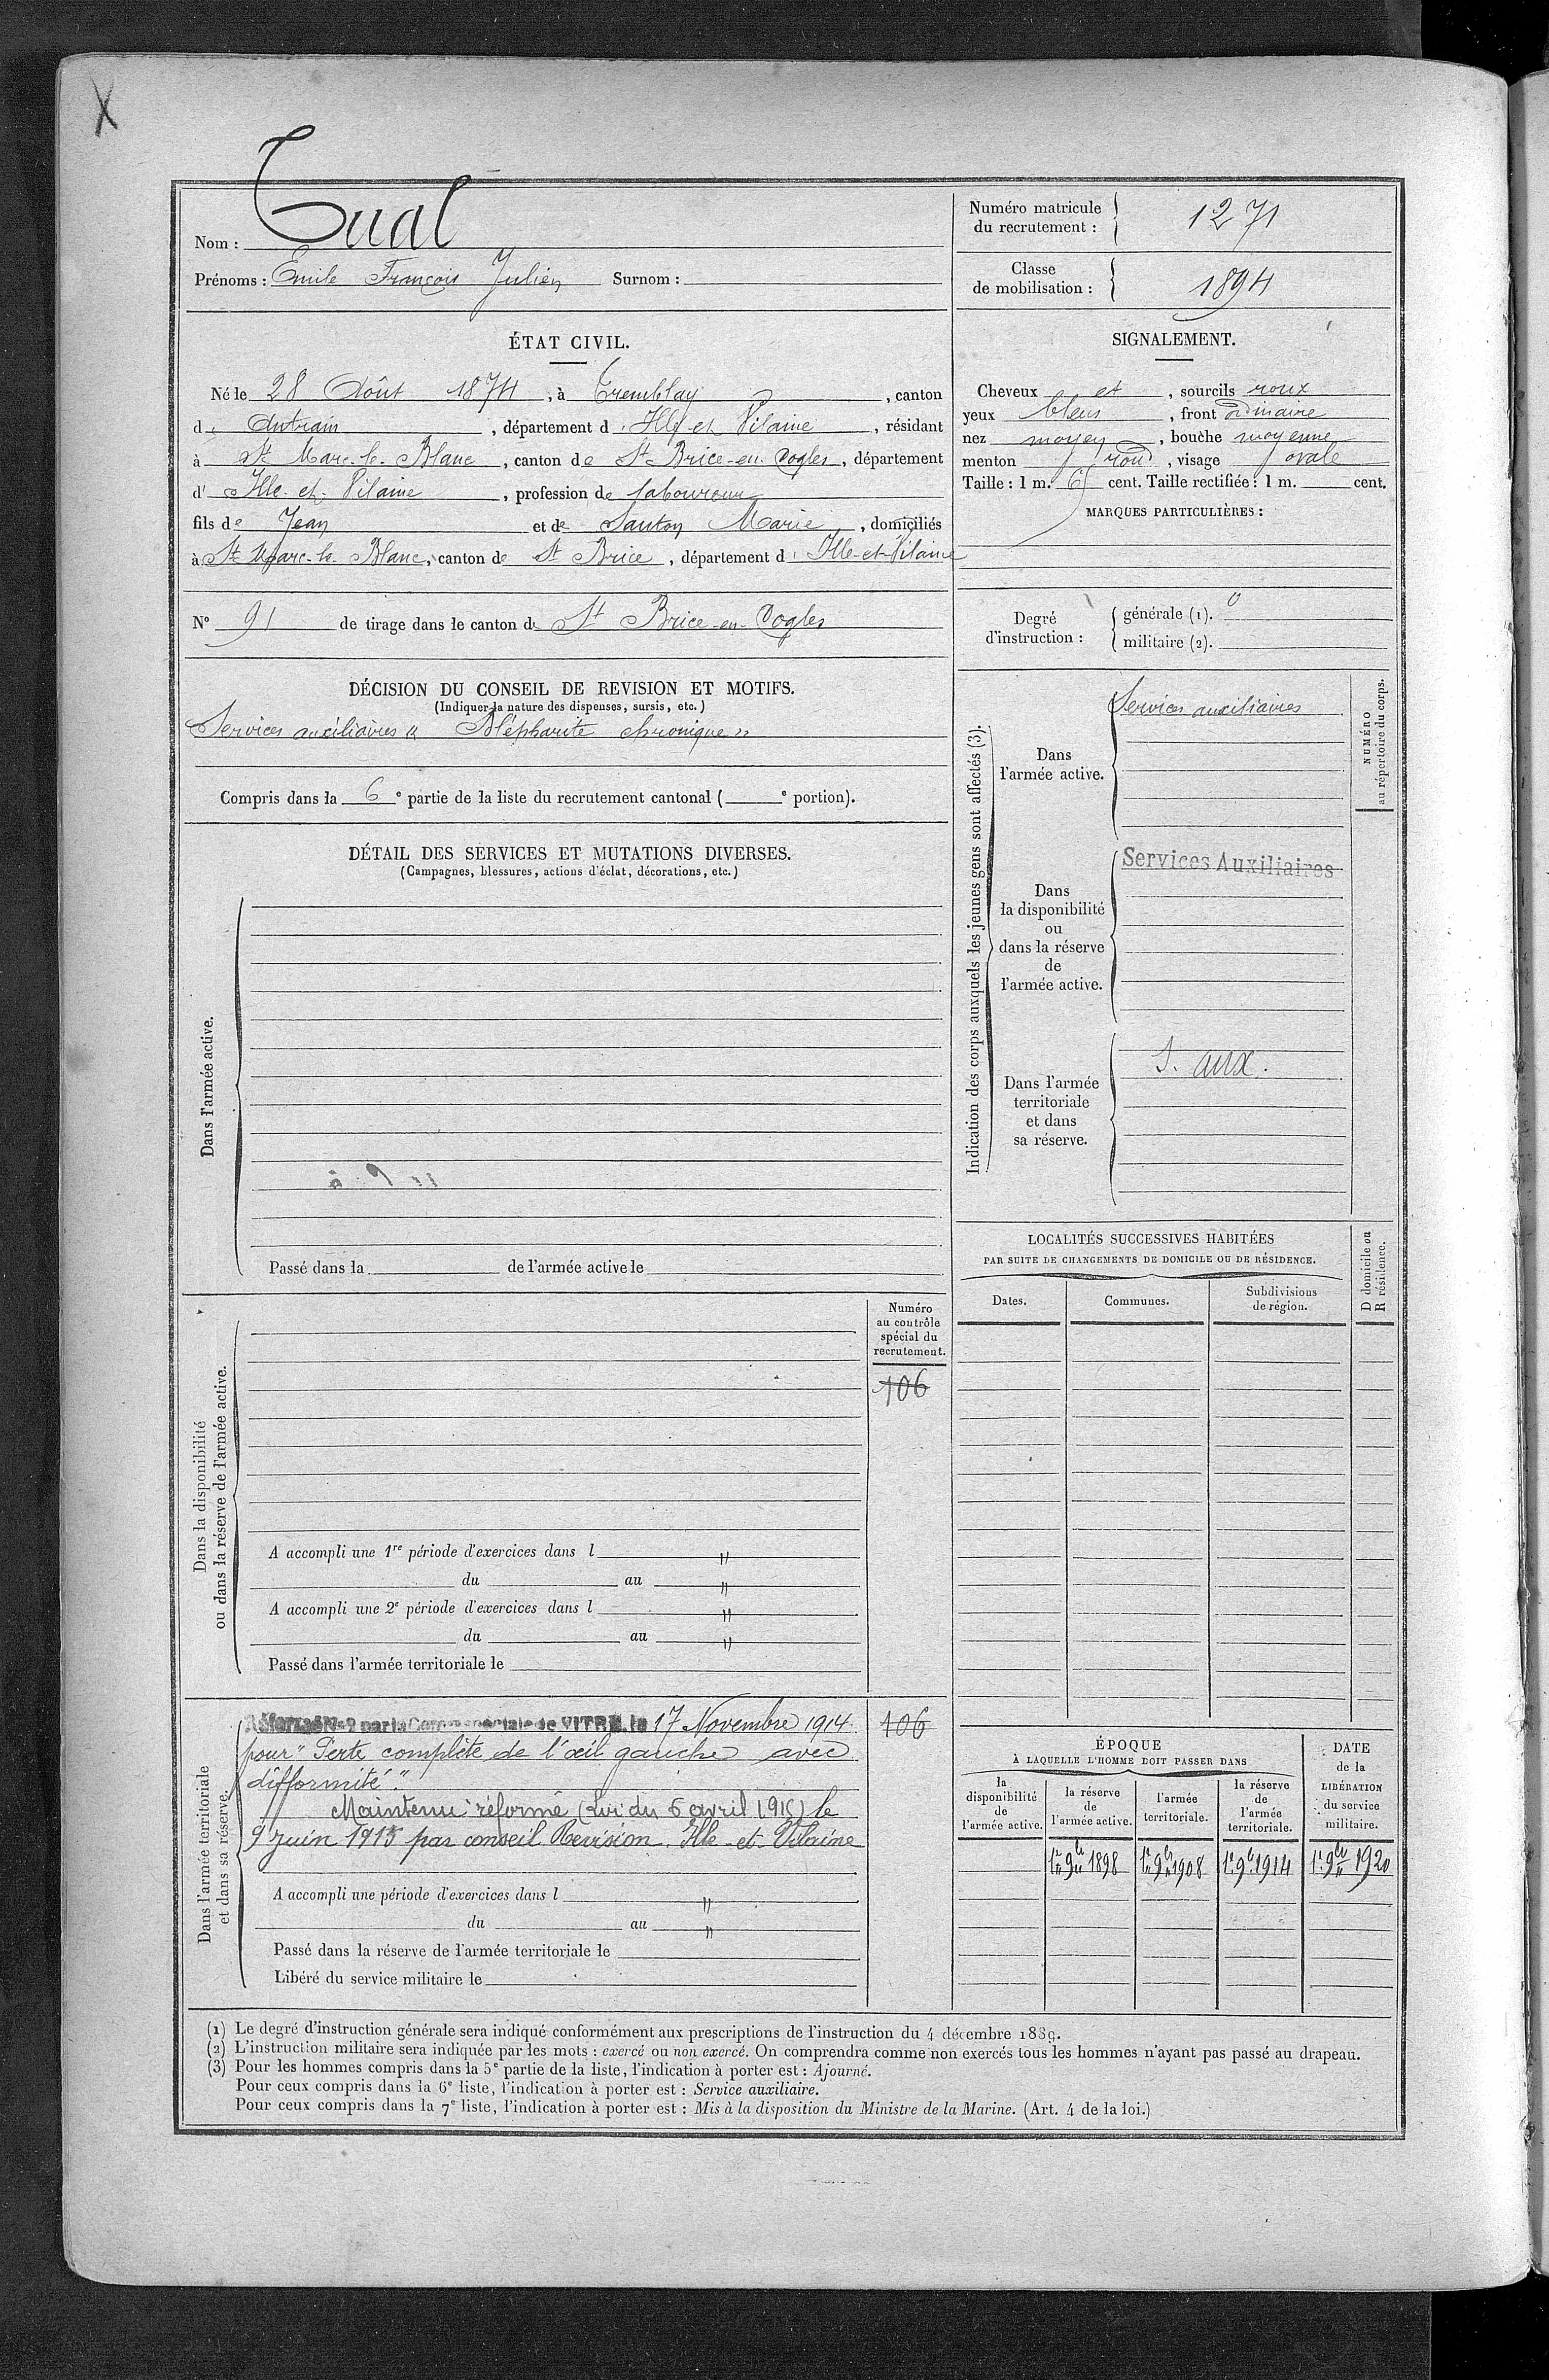 X
Nom : Tual
Prénoms : Emile François Julien Surnom :
Numéro matricule du recrutement : 1271
Classe de mobilisation : 1894
ÉTAT CIVIL.
Né le 28 Août 1874, à Tremblay, canton
de Antrain, département d'Ille et Vilaine, résidant
à St Marc-le-Blanc, canton de St Brice-en-Cogles, département
d' Ille-et-Vilaine, profession de laboureur
fils de Jean et de Santon Marie, domiciliés
à St Marc-le-Blanc, canton de St Brice, département d'Ille-et-Vilaine
N° 91 de tirage dans le canton de St Brice-en-Cogles
DÉCISION DU CONSEIL DE REVISION ET MOTIFS.
(Indiquer la nature des dispenses, sursis, etc.)
Services auxiliaires " Blépharite chronique "
Compris dans la 6e partie de la liste du recrutement cantonal ( e portion).
DÉTAIL DES SERVICES ET MUTATIONS DIVERSES.
(Campagnes, blessures, actions d'éclat, décorations, etc.)
Dans l'armée active.
Passé dans la de l'armée active le
Dans la disponibilité
ou dans la réserve de l'armée active.
Numéro
au contrôle
spécial du
recrutement.
106
A accompli une 1re période d'exercices dans l "
du au "
A accompli une 2e période d'exercices dans l "
du au "
Passé dans l'armée territoriale le
Dans l'armée territoriale
et dans sa réserve.
Réformé N°2 par la Comm spéciale de VITRÉ, le 17 Novembre 1914
106
pour "Perte complète de l'œil gauche avec
difformité."
Maintenu réformé (Loi du 6 avril 1915) le
9 Juin 1915 par conseil Revision. Ille-et-Vilaine
A accompli une période d'exercices dans l "
du au "
Passé dans la réserve de l'armée territoriale le
Libéré du service militaire le
SIGNALEMENT.
Cheveux et, sourcils roux
yeux bleus, front ordinaire
nez moyen, bouche moyenne
menton rond, visage ovale
Taille : 1 m. 65 cent. Taille rectifiée : 1 m. cent.
MARQUES PARTICULIÈRES :
Degré d'instruction :
générale (1). 0
militaire (2).
Indication des corps auxquels les jeunes gens sont affectés (3).
NUMÉRO
au répertoire du corps.
Dans
l'armée active.
Services auxiliaires
Dans
la disponibilité
ou
dans la réserve
de
l'armée active.
Services Auxiliaires
Dans l'armée
territoriale
et dans
sa réserve.
S. aux.
LOCALITÉS SUCCESSIVES HABITÉES
PAR SUITE DE CHANGEMENTS DE DOMICILE OU DE RÉSIDENCE.
D domicile ou
R résidence.
Dates. Communes. Subdivisions de région.
ÉPOQUE
À LAQUELLE L'HOMME DOIT PASSER DANS
la disponibilité de l'armée active.
la réserve de l'armée active.
l'armée territoriale.
la réserve de l'armée territoriale.
DATE
de la
LIBÉRATION
du service
militaire.
1er 9bre 1898 1er 9bre 1908 1er 9bre 1914 1er 9bre 1920
(1) Le degré d'instruction générale sera indiqué conformément aux prescriptions de l'instruction du 4 décembre 1889.
(2) L'instruction militaire sera indiquée par les mots : exercé ou non exercé. On comprendra comme non exercés tous les hommes n'ayant pas passé au drapeau.
(3) Pour les hommes compris dans la 5e partie de la liste, l'indication à porter est : Ajourné.
Pour ceux compris dans la 6e liste, l'indication à porter est : Service auxiliaire.
Pour ceux compris dans la 7e liste, l'indication à porter est : Mis à la disposition du Ministre de la Marine. (Art. 4 de la loi.)